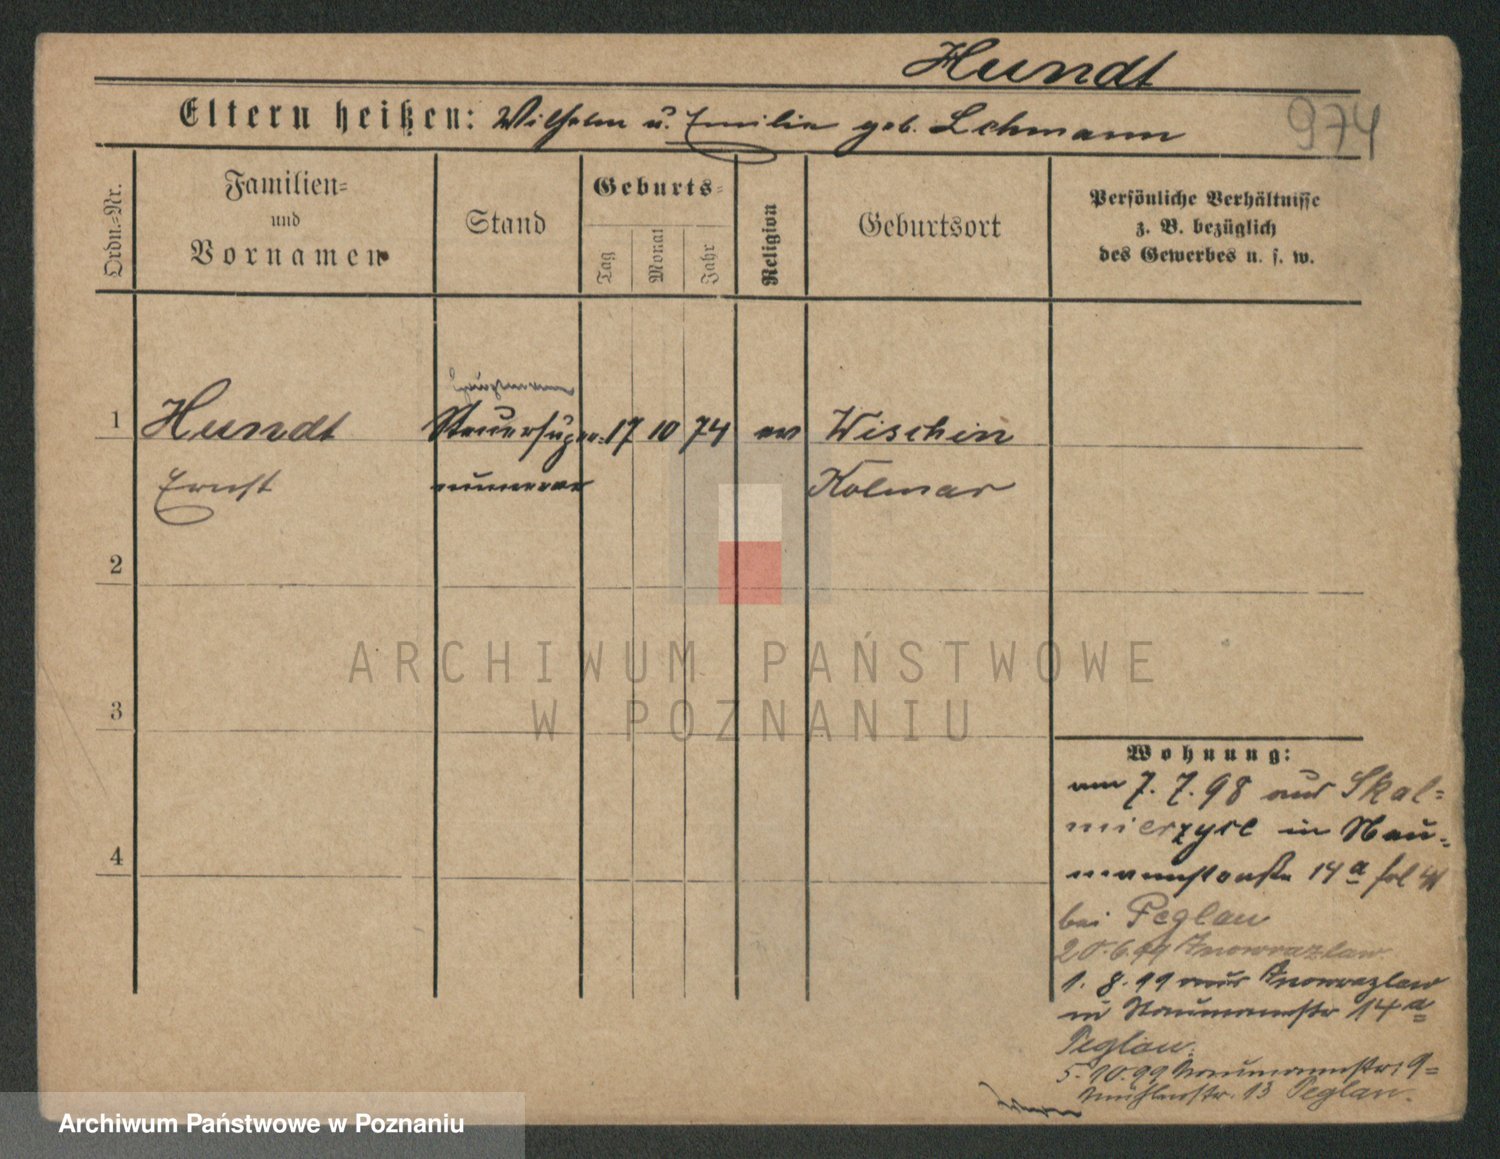 Hundt
Eltern heißen: Wilhelm u. Emilie geb. Lehmann
974
Ordn.=Nr.
Familien=
und
Vornamen
Stand
Geburts=
Tag
Monat
Jahr
Religion
Geburtsort
Persönliche Verhältnisse
z. B. bezüglich
des Gewerbes u. s. w.
1
Hundt
Steuersuper=
17
10
74
ev
Wischin
Ernst
numerar
Kolmar
2
3
4
ARCHIWUM PAŃSTWOWE
W POZNANIU
Wohnung:
am 7. 7. 98 aus Skal=
mierzyce in Nau=
mannstraße 14a
bei Peglau
20.6.99 Inowrazlaw
1. 8. 99 aus Inowrazlaw
in Naumannstr 14a
Peglau.
5.10.99 Naumannstr. 9=
Mühlenstr. 13 Peglau.
Archiwum Państwowe w Poznaniu